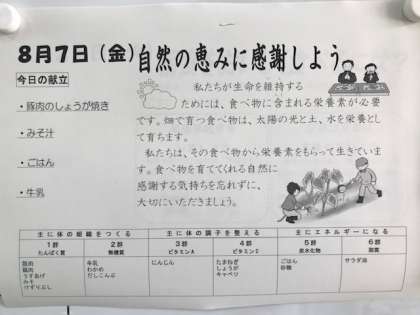 8月7日（金）自然の恵みに感謝しよう
今日の献立
・豚肉のしょうが焼き
・みそ汁
・ごはん
・牛乳
私たちが生命を維持する
ためには、食べ物に含まれる栄養素が必要
です。畑で育つ食べ物は、太陽の光と土、水を栄養とし
て育ちます。
私たちは、その食べ物から栄養素をもらって生きていま
す。食べ物を育ててくれる自然に
感謝する気持ちを忘れずに、
大切にいただきましょう。
主に体の組織をつくる 主に体の調子を整える 主にエネルギーになる
1群 2群 3群 4群 5群 6群
たんぱく質 無機質 ビタミンA ビタミンC 炭水化物 脂質
豚肉 牛乳 にんじん たまねぎ ごはん サラダ油
鶏肉 わかめ しょうが 砂糖
うすあげ だしこんぶ キャベツ
みそ
けずりぶし